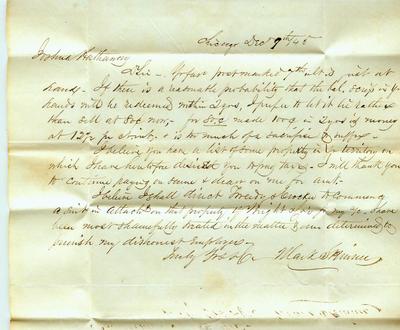 Chicago Decr 9th /45
Joshua Hathaway
Sir - Yr favr post marked 7th inst. is just at
hand - If there is a reasonable probability that the bal. scrip in yr
hands will be redeemed within 2 yrs, I prefer to let it lie rather
than sell at 80c now - for made in 2 yrs if money
at 12 % is too much of a sacrifice to suffer -
I believe you have a list of some property in yr territory on
which I have heretofore desired you to pay taxes - I will thank you
to continue paying on same & draw on me for amt.
I believe I shall direct & Crocker to commence
a suit in attach on that property of Wright I have
been most shamefully treated in the matter & am determined to
punish my dishonest Employee -
Truly Yrs &c Mark Skinner